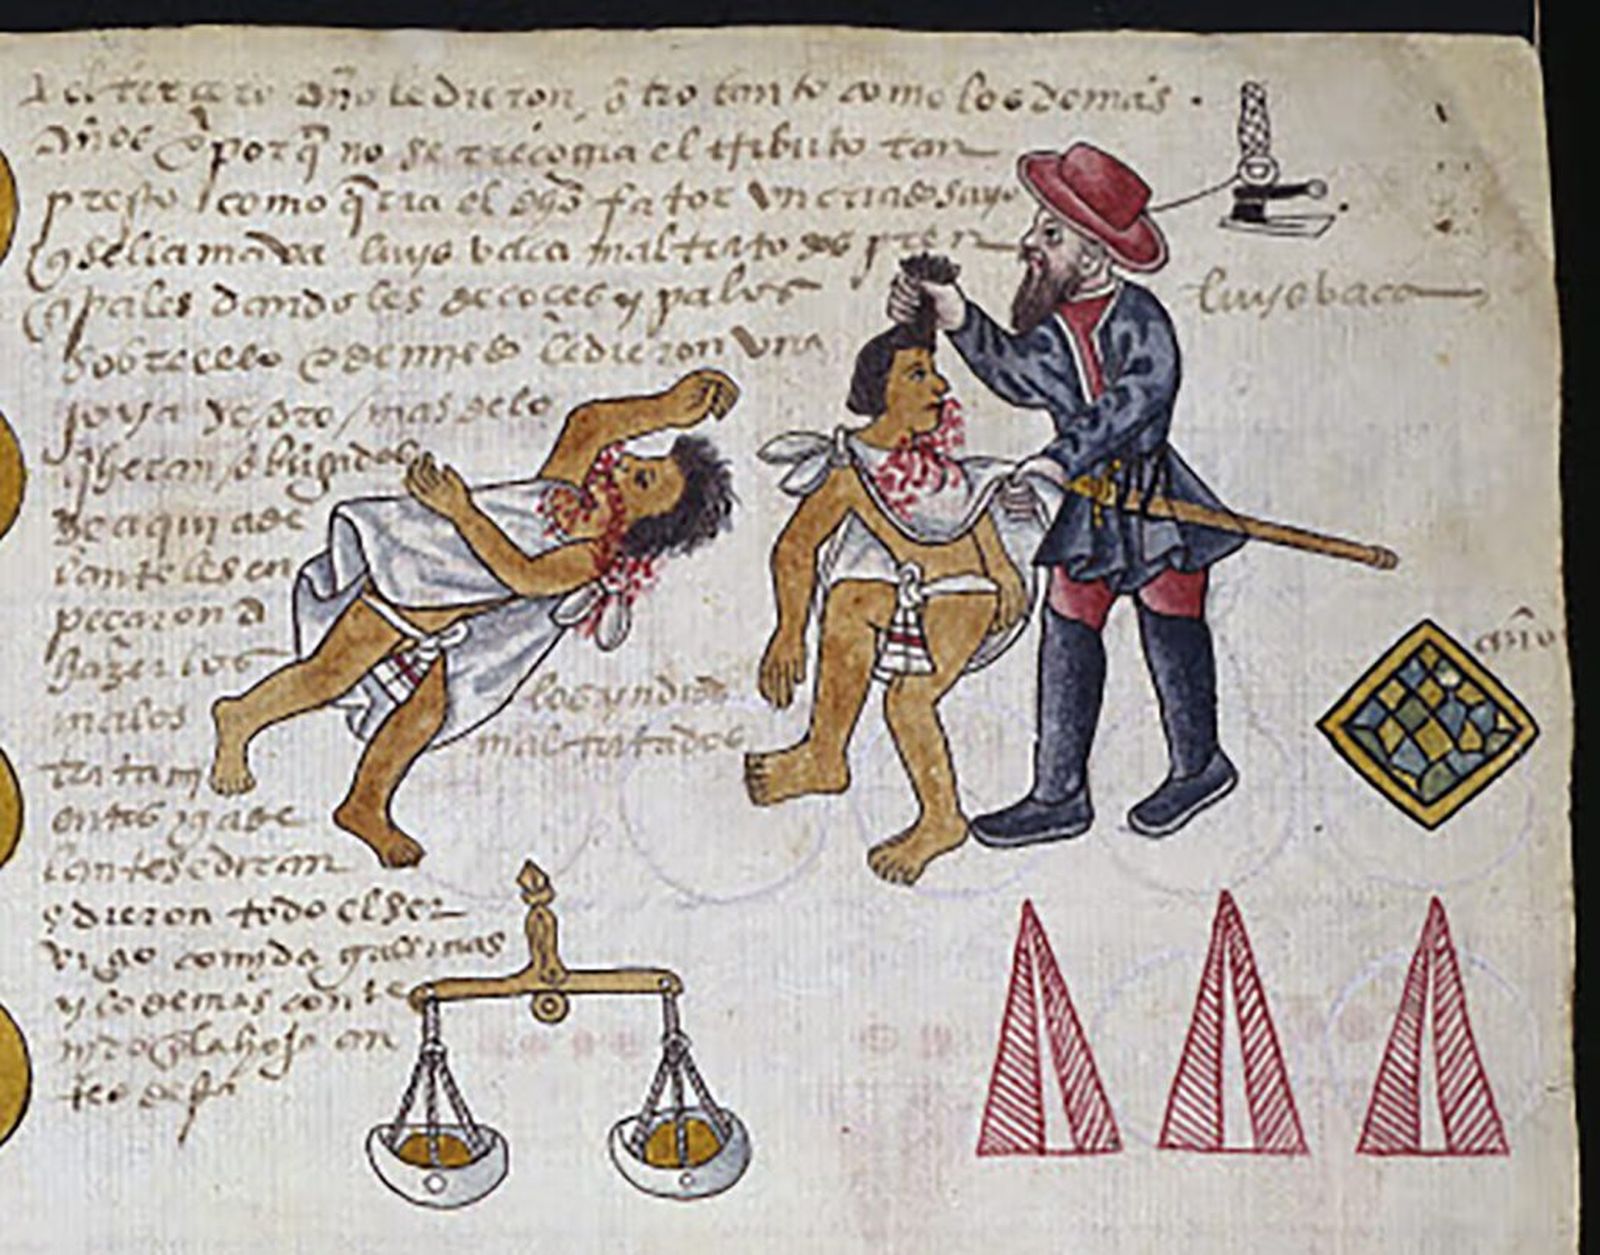 el tercero año le dieron otro tanto como los demas
años porq̃ no se recogia el tributo tan
presto como q̃ria el fator un criado suyo
q̃ se llamava luys vaca maltrato los prin
çipales dandoles de coçes y palos
sobre ello le dieron una
joya de oro mas de lo
q̃ heran obligados
de aqui ade
lante les en
peçaron a
hazer los
malos
tratami
entos y ade
lante
e dieron todo el ser
viçio comyda gallinas
y lo demas conte
nydo en la hoja an
tes desta
los yndios
maltratados
luys vaca